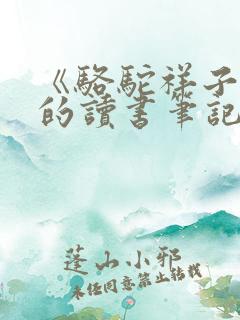 《駱駝祥子》
的讀書筆記
蓬山小邪
未任同意禁止转载